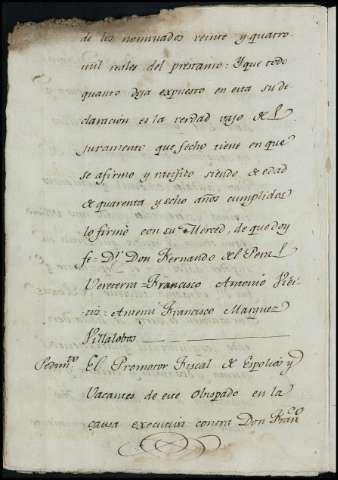 de los nominados veinte y quatro
mil reales del prestamo: Y que todo
quanto deja expuesto en esta su de
claración es la verdad vajo de el
juramento que fecho tiene en que
se afirmo y ratifico siendo de edad
de quarenta y ocho años cumplidos
lo firmò con su Merced, de que doy
fe = Dr. Don Fernando de el Pozo
Vererra = Francisco Antonio
Antemi Francisco Marquez
Villalobos
Pedimto. El Promotor Fiscal de Espolios y
Vacantes de este Obispado en la
causa executiva contra Don Franco